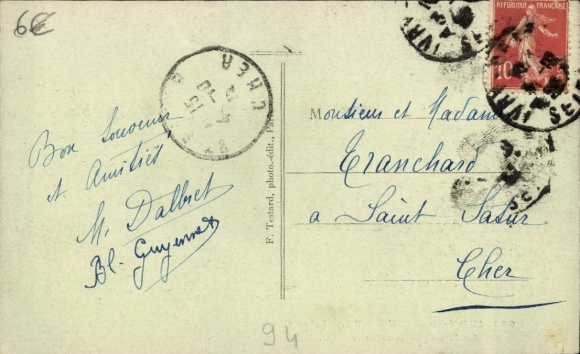 6€
Bon Souvenir
et Amitiés
M. Dalbret
Bl. Guyennet
F. Testard, photo.-édit., Par
CHER
15
RÉPUBLIQUE FRANÇAISE
10
IVRY
SEINE
Monsieur et Madame
Tranchard
a Saint Satur
Cher
94